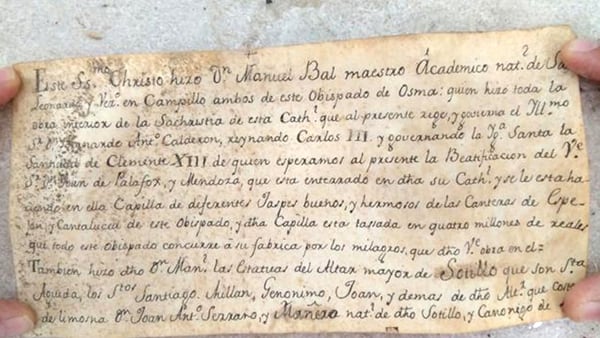 Este Ss.mo Christo hizo D.n Manuel Bal maestro Academico nat.l de Sa
Leonardo y Vez.o en Campillo ambos de este Obispado de Osma: quien hizo toda la
obra interior de la Sachristia de esta Cath.l que al presente rige, y govierna el Ill.mo
S.r D.n Bernardo Ant.o Calderon, reynando Carlos III. y governando la Yg.a Santa la
Santidad de Clemente XIII de quien esperamos al presente la Beatificacion del V.e
S.r D.n Juan de Palafox, y Mendoza, que esta enterrado en dha su Cath.l y se le esta ha
ciendo en ella Capilla de diferentes Jaspes buenos, y hermosos de las Canteras de Espe
jon, y Cantalucia de este Obispado, y dha Capilla esta tasada en quatro millones de reales
que todo este Obispado concurre a su fabrica por los milagros, que dho V.e obra en el=
Tambien hizo dho D.n Man.l las Estatuas del Altar mayor de Sotillo que son S.ta
Agueda, los S.tos Santiago, Millan, Geronimo, Joan, y demas de dho Alt.r que costeo
de limosna D.n Joan Ant.o Serrano, y nat.l de dho Sotillo, y Canonigo de